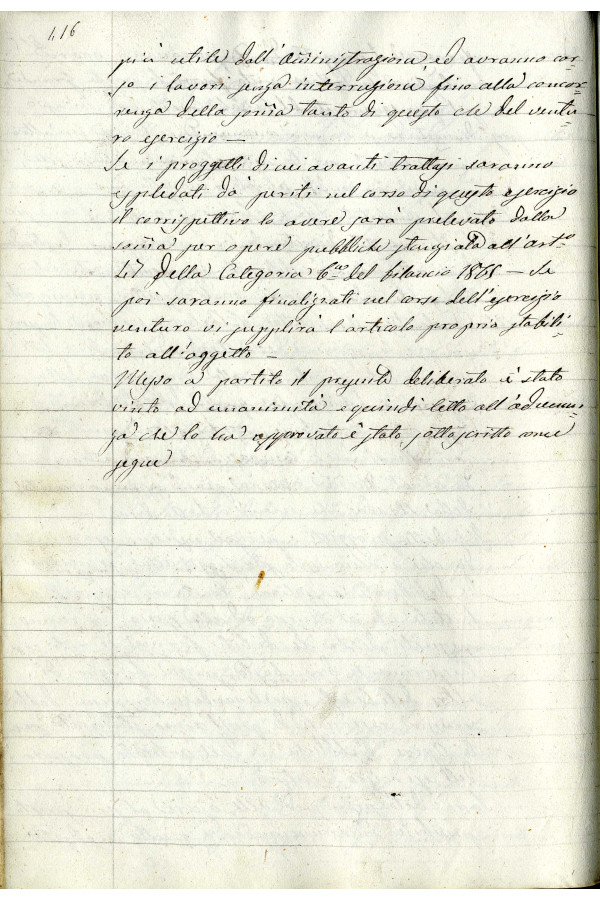 416
più utile dall'Aministrazione, ed avranno cor-
so i lavori senza interruzione fino alla concor-
renza della soma tanto di questo che del ventu-
ro esercizio —
Se i proggetti di cui avanti trattasi saranno
espledati da periti nel corso di questo esercizio
il corrispettivo lo avere sarà prelevato dalla
soma per opere pubbliche stanziata all'arto
47 della Categoria 6a del bilancio 1861 — Se
poi saranno finalizzati nel corso dell'esercizio
venturo vi supplirà l'articolo proprio stabili-
to all'oggetto —
Messo a partito il presente deliberato è stato
vinto ad unanimità e quindi letto all'adunan-
za che lo ha approvato è stato sottoscritto come
segue